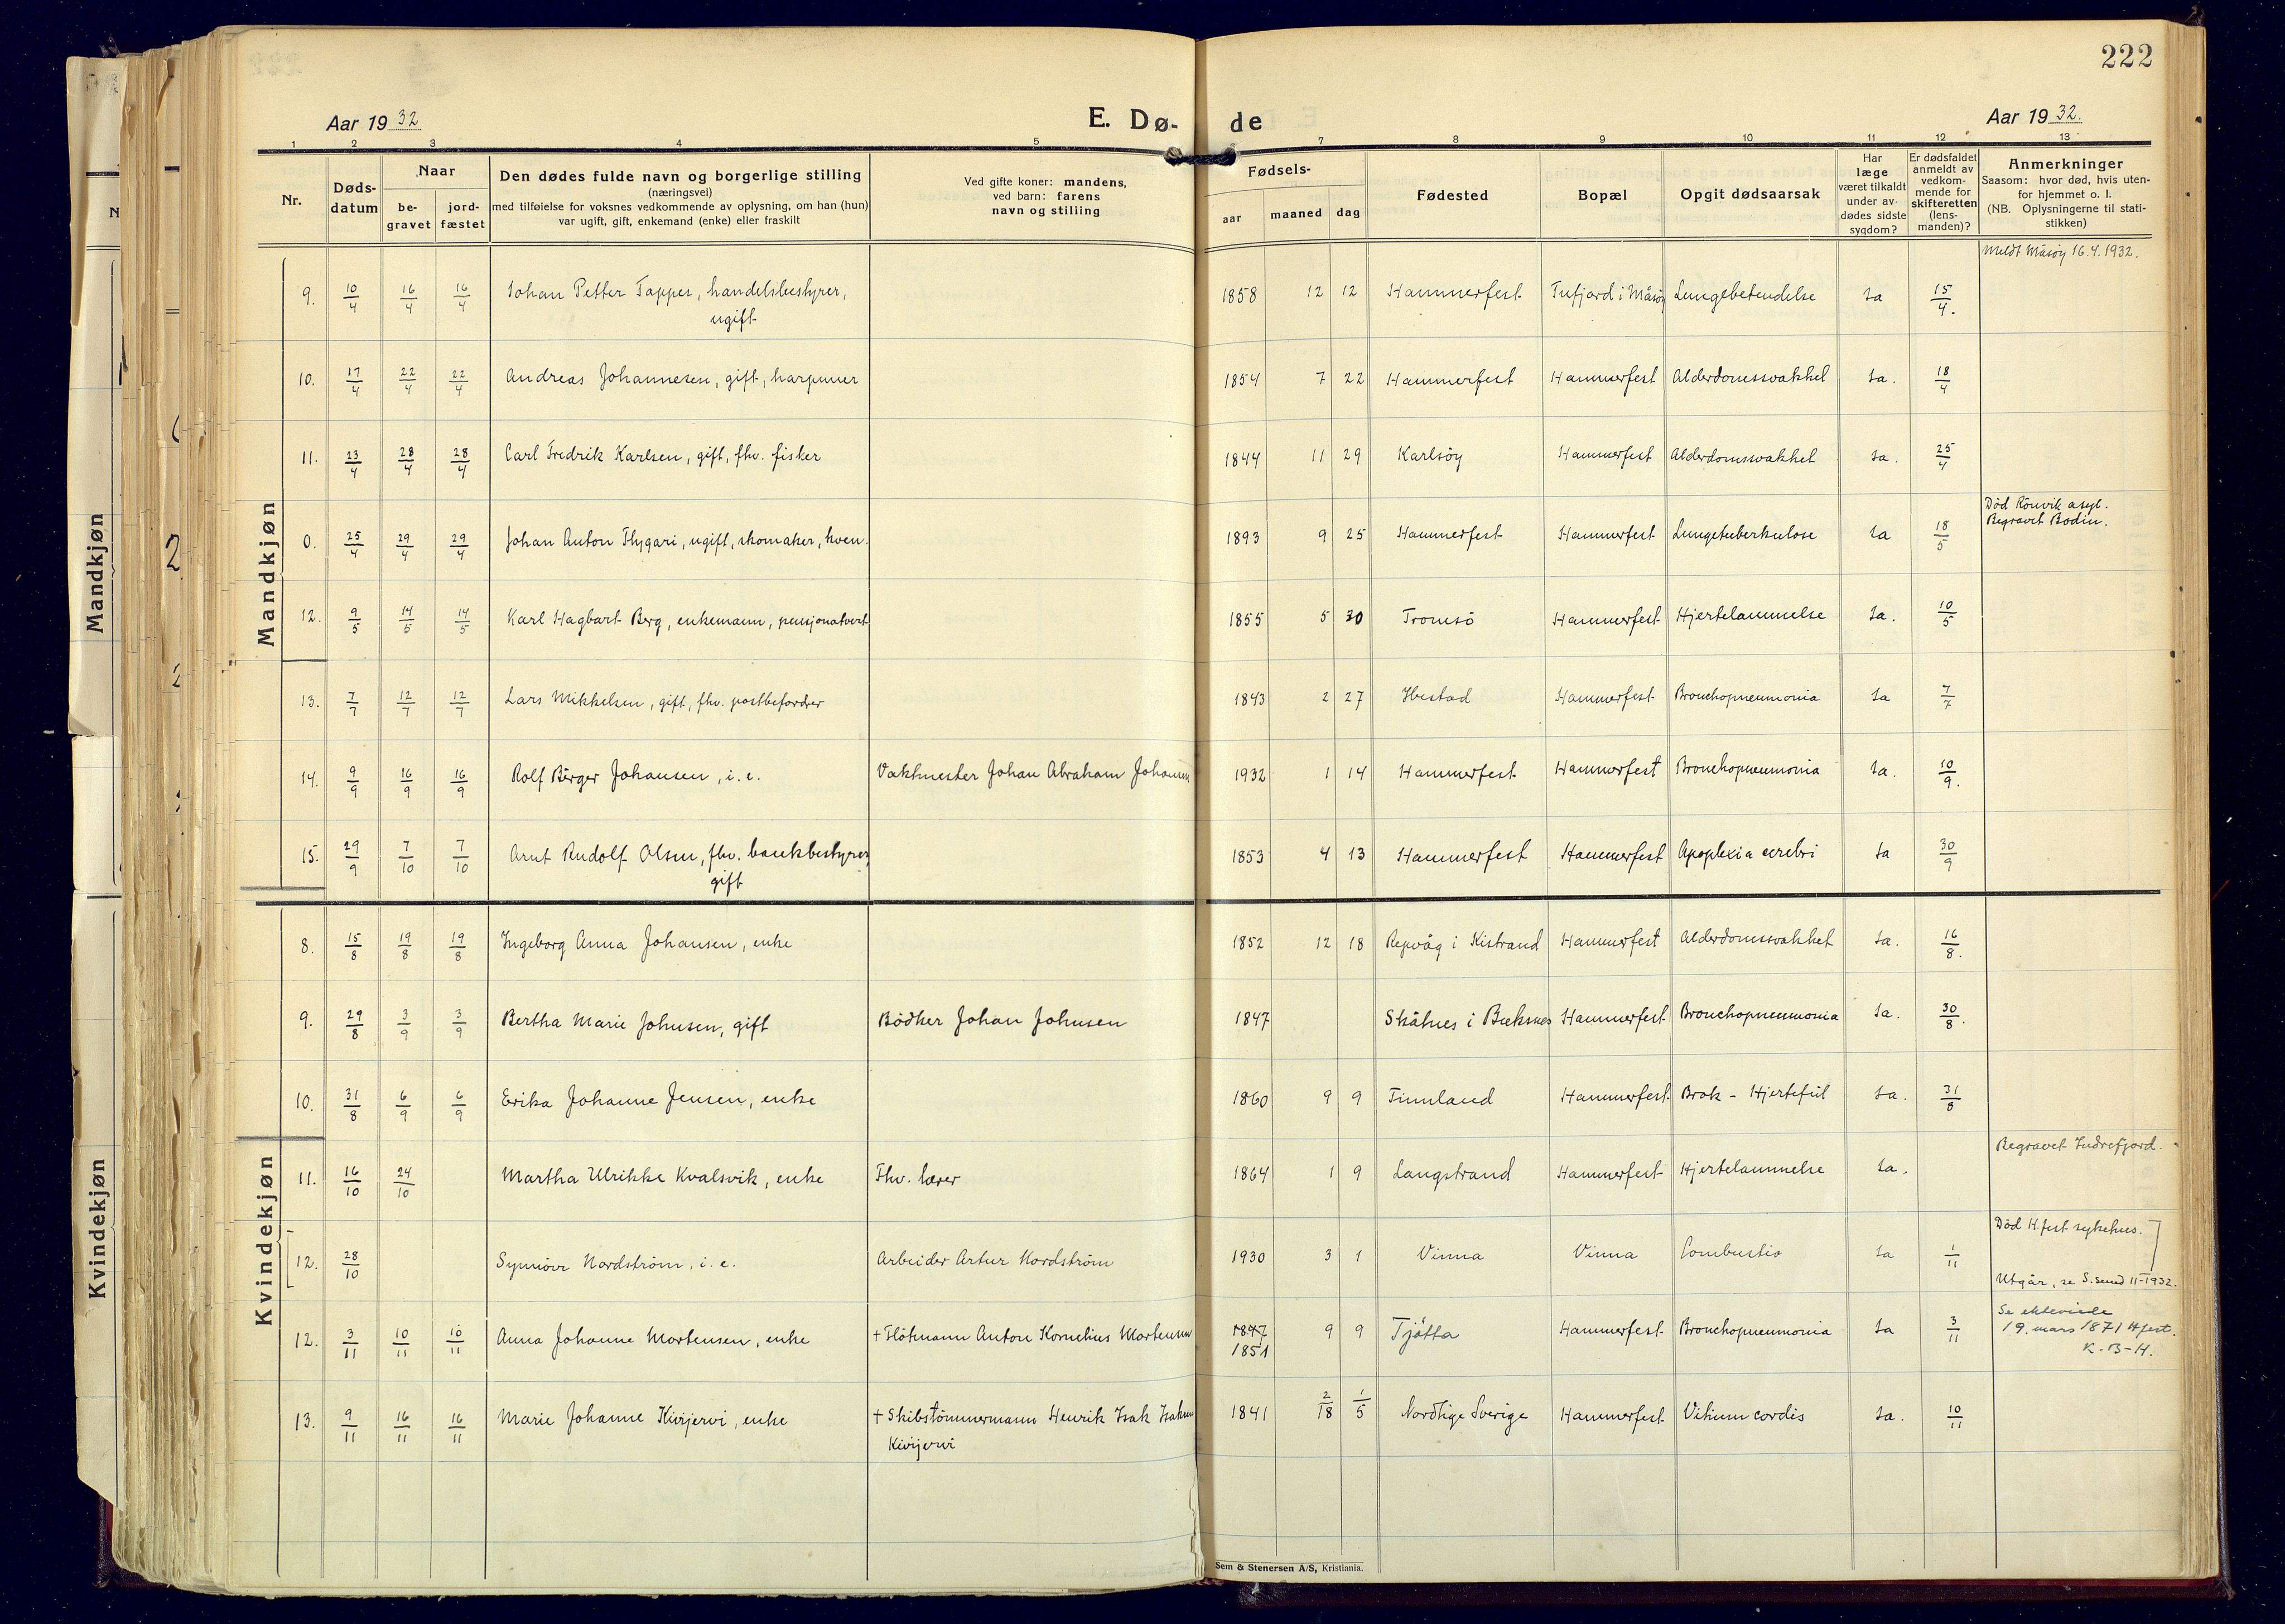 222
Aar 1932
E. Dø-
de
Aar 1932.
1 2 3 4 5 7 8 9 10 11 12 13
Nr.
Døds-
datum
Naar
be-
gravet
jord-
fæstet
Den dødes fulde navn og borgerlige stilling
(næringsvei)
med tilføielse for voksnes vedkommende av oplysning, om han (hun)
var ugift, gift, enkemand (enke) eller fraskilt
Ved gifte koner: mandens,
ved barn: farens
navn og stilling
Fødsels-
aar maaned dag
Fødested
Bopæl
Opgit dødsaarsak
Har
læge
været tilkaldt
under av-
dødes sidste
sygdom?
Er dødsfaldet
anmeldt av
vedkom-
mende for
skifteretten
(lens-
manden)?
Anmerkninger
Saasom: hvor død, hvis uten-
for hjemmet o. l.
(NB. Oplysningerne til stati-
stikken)
Mandkjøn
Mandkjøn
Meldt Måsöy 16.4.1932.
9. 10/4 16/4 16/4 Johan Petter Tapper, handelsbestyrer, 1858 12 12 Hammerfest Tufjord i Måsöy Lungebetendelse Ja 15/4.
ugift
10. 17/4 22/4 22/4 Andreas Johannesen, gift, harpuner 1854 7 22 Hammerfest Hammerfest Alderdomssvakhet Ja. 18/4
11. 23/4 28/4 28/4 Carl Fredrik Karlsen, gift, fhv. fisker 1844 11 29 Karlsöy Hammerfest Alderdomssvakhet Ja. 25/4
Död Rönvik asyl.
Begravet Bodin.
0. 25/4 29/4 29/4 Johan Anton Flygari, ugift, skomaker, kven. 1893 9 25 Hammerfest Hammerfest Lungetuberkulose Ja 18/5
12. 9/5 14/5 14/5 Karl Hagbart Berg, enkemann, pensjonatvert 1855 5 30 Tromsö Hammerfest Hjertelammelse Ja. 10/5
13. 7/7 12/7 12/7 Lars Mikkelsen, gift, fhv. postbefordrer 1843 2 27 Ibestad Hammerfest Bronchopneumonia Ja 7/7
14. 9/9 16/9 16/9 Rolf Birger Johansen, i.e. Vaktmester Johan Abraham Johansen 1932 1 14 Hammerfest Hammerfest Bronchopneumonia Ja. 10/9.
15. 29/9 7/10 7/10 Arnt Rudolf Olsen, fhv. bankbestyrer, 1853 4 13 Hammerfest Hammerfest Apoplexia cerebri Ja 30/9
gift
Kvindekjøn
Kvindekjøn
8. 15/8 19/8 19/8 Ingeborg Anna Johansen, enke 1852 12 18 Repvåg i Kistrand Hammerfest Alderdomssvakhet Ja. 16/8.
9. 29/8 3/9 3/9 Bertha Marie Johnsen, gift Bödker Johan Johnsen 1847 Skåtnes i Buksnes Hammerfest Bronchopneumonia Ja. 30/8.
10. 31/8 6/9 6/9 Erika Johanne Jensen, enke 1860 9 9 Finnland Hammerfest Brok - Hjertefeil Ja. 31/8
Begravet Indrefjord.
11. 16/10 24/10 Martha Ulrikke Kvalsvik, enke Fhv. lærer 1864 1 9 Langstrand Hammerfest Hjertelammelse Ja.
Död H.fest sykehus.
12. 28/10 Synnöve Nordström, i.e. Arbeider Artur Nordström 1930 3 1 Vinna Vinna Combustio Ja 1/11
Utgår, se S.sund 11-1932.
Se ekteviede
12. 3/11 10/11 10/11 Anna Johanne Mortensen, enke + Flötmann Anton Kornelius Mortensen 1847 9 9 Tjötta Hammerfest Bronchopneumonia Ja 3/11 19. mars 1871 Hfest.
1851 K-B-H.
13. 9/11 16/11 16/11 Marie Johanne Kivijervi, enke + Skibstömmermann Henrik Isak Isaksen 1841 2/18 1/5 Nordlige Sverige Hammerfest Vitium cordis Ja. 10/11
Kivijervi
Sem & Stenersen A/S, Kristiania.